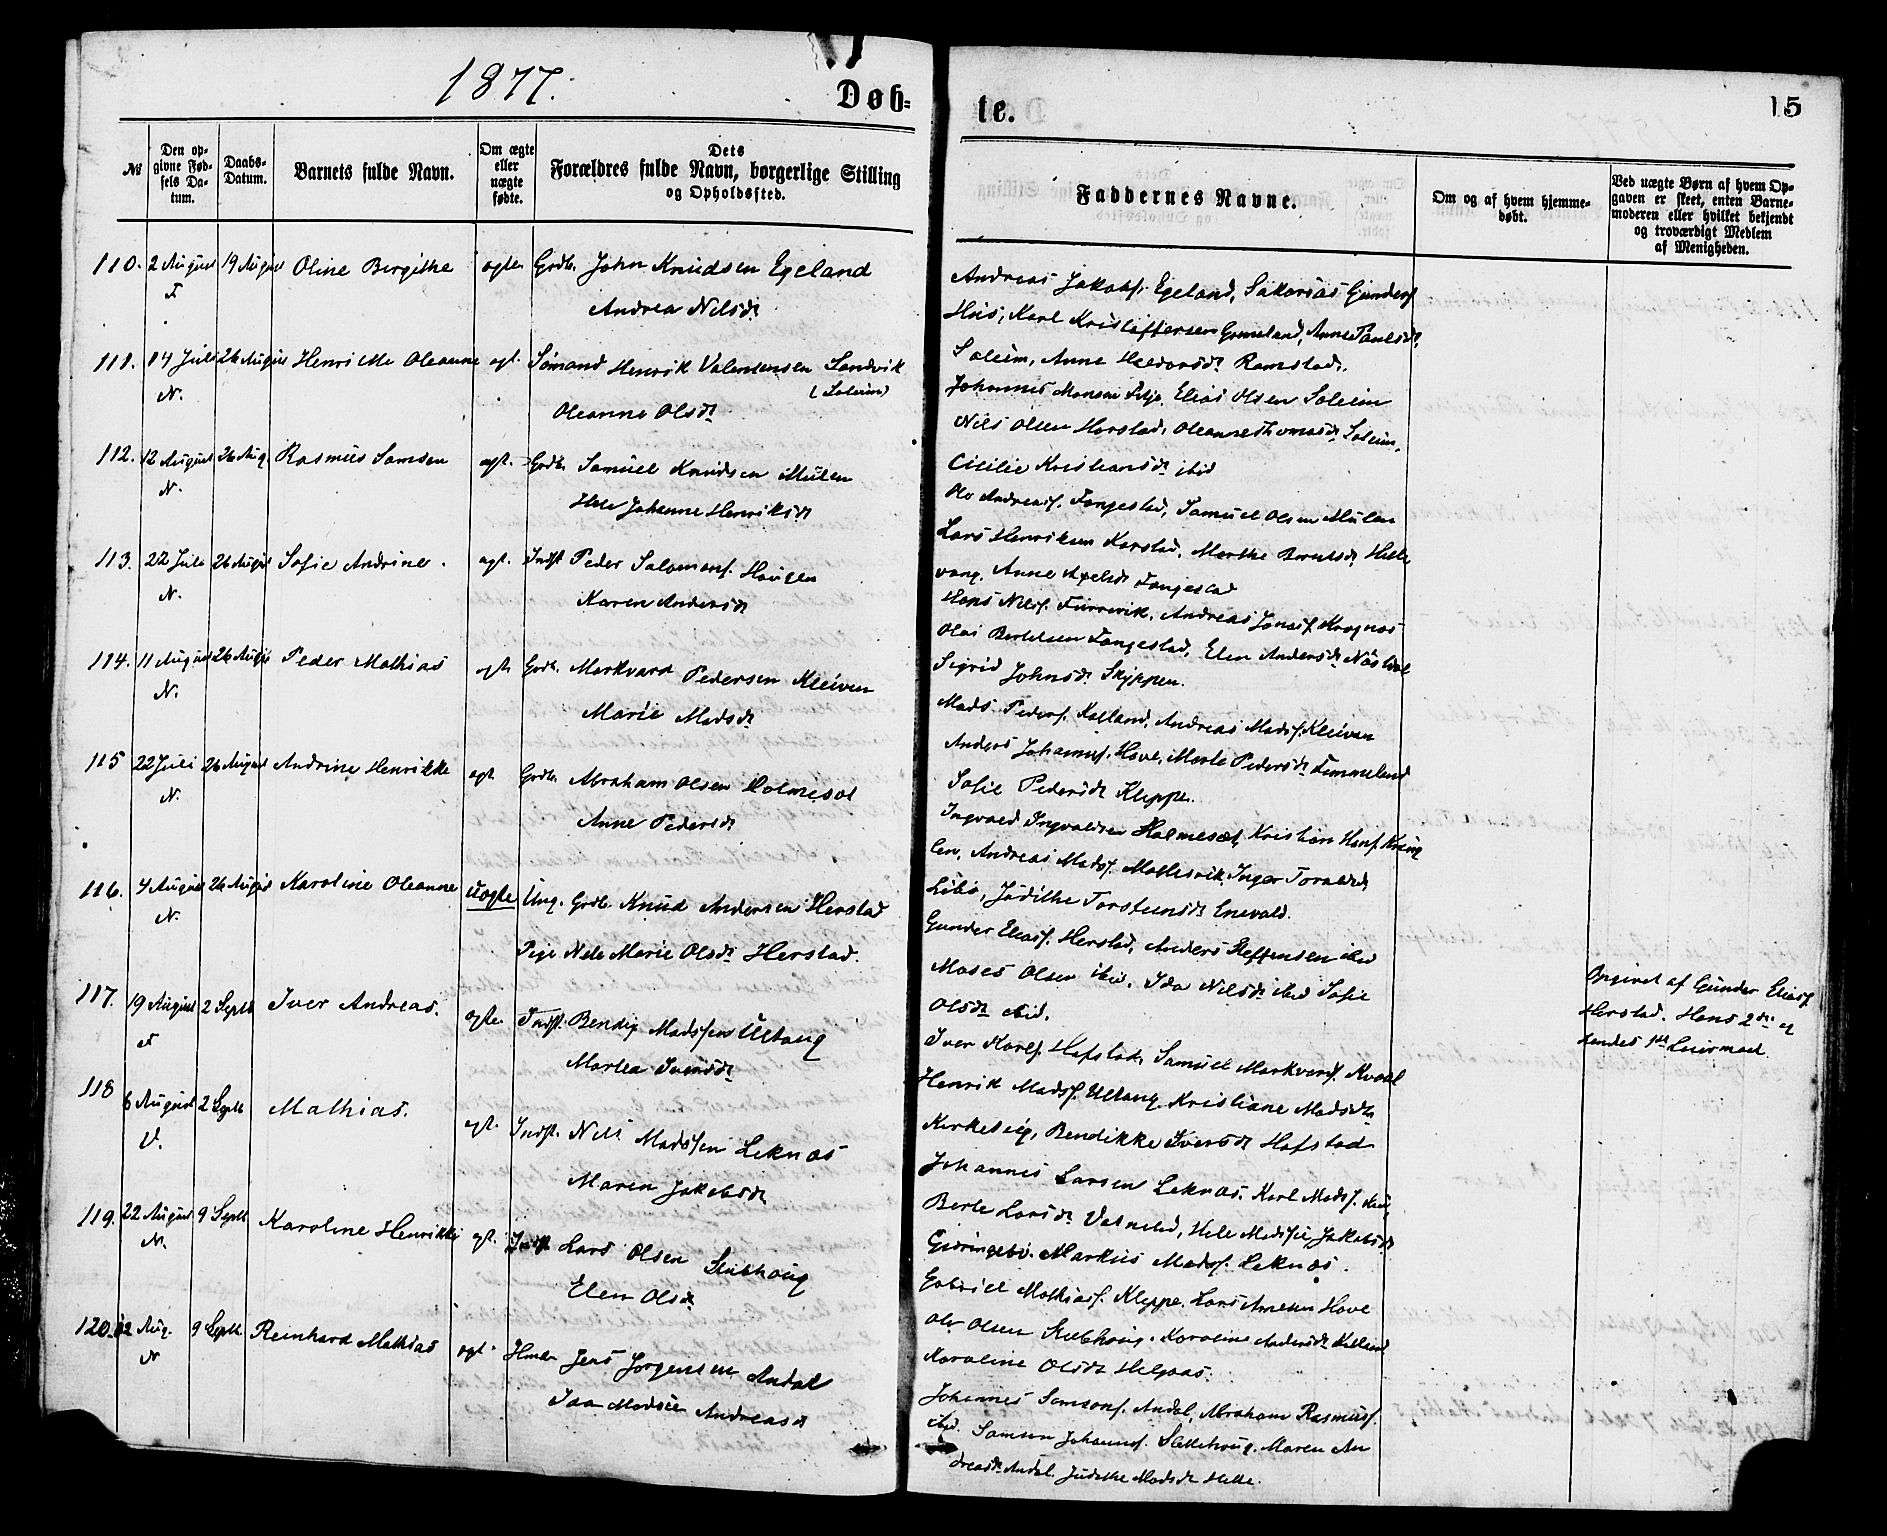 1877.
Døb-
te.
15
№
Den op-
givne Fød-
sels Da-
tum.
Daabs-
Datum.
Barnets fulde Navn.
Om ægte
eller
uægte
fødte.
Dets
Forældres fulde Navn, borgerlige Stilling
og Opholdssted.
Faddernes Navne.
Om og af hvem hjemme-
døbt.
Ved uægte Børn af hvem Op-
gaven er skeet, enten Barne-
moderen eller hvilket bekjendt
og troværdigt Medlem
af Menigheden.
110. 2 August 19 August Oline Bergithe ægte. Grdb. John Knudsen Egeland
F Andrea Nilsdt
Andreas Jakobs. Egeland, Sakarias Gunders.
Hus, Karl Kristoffersen Grimeland, Anne Paulsdt.
Soleim, Anne Haldorsdt Ramstad.
111. 14 Juli 26 August Henrikke Oleanne ægt. Sømand Henrik Valemensen Sandvik
(Soleim)
N. Oleanne Olsdt
Johannes Monsen Silje, Elias Olsen Soleim
Nils Olsen Herstad, Oleanne Thomasdt Soleim,
Cicilie Kristiansdt ibid
112. 12 August 26 Aug. Rasmus Samsen ægt. Grdb. Samuel Knudsen Mulen
N. Hele Johanne Henriksdt
Ole Andreass. Fangestad, Samuel Olsen Mulen
Lars Henriksen Karstad, Marthe Berntsdt Helle
vang, Anne Axelsdt Fangestad
113. 22 Juli 26 August Sofie Andrine. ægt. Indst Peder Salomons. Hougen
N. Karen Andersdt
Hans Nils. Furrevik, Andreas Jonas. Kragnes
Olai Bertelsen Fangestad, Elen Andersdt Nøstdal
Sigrid Johnsdt Skjppen.
114. 11 August 26 August Peder Mathias ægt. Grdb. Markvard Pedersen Kleiven
N. Marie Madsdt
Mads Peders. Kalland, Andreas Mads. Kleiven
Anders Johannes. Hove, Marte Pedersdt Timmeland
Sofie Pedersdt Kleppe.
115 22 Juli 26 August Andrine Henrikke ægt. Grdb. Abraham Olsen Holmeset
N. Anne Pedersdt
Ingvald Ingvaldsen Holmeset, Kristian Hans. Kring
len, Andreas Mads. Mallesvik, Inger Toraldsdt
Libø, Judithe Torsteinsdt Enevald.
116. 4 August 26 August Karoline Oleanne Uægte Ung. Grdb. Knud Andersen Herstad
N. Pige Nele Marie Olsdt Herstad.
Gunder Elias. Herstad, Anders Steffensen ibid
Moses Olsen ibid. Ida Nilsdt ibid Sofie
Olsdt ibid.
Opgivet af Gunder Elias.
Herstad. Hans 2det og
hendes 1ste Leiermaal.
117. 19 August 2 Septb Iver Andreas. ægte. Indst. Bendig Madssen Ultang
F Martea Iversdt
Iver Karls. Hafstad, Samuel Markvards. Kvaal
Henrik Mads. Ultang Kristiane Madsdt
Kirkeleig, Bendikke Iversdt Hafstad
118 6 August 2 Septb Mathias. ægt. Indst. Nils Madssen Leknæs
V. Maren Jakobsdt
Johannes Larsen Leknæs, Karl Mads.
Berte Larsdt Valnesd, Hele Madsie, Jakobsdt
Gjeringebø. Markus Mads. Leknæs.
119. 22 August 9 Septb Karoline Henrikke ægt. Indst Lars Olsen Stubhoug
N. Elen Olsdt
Gabriel Mathias. Kleppe, Lars Arnesen Hove
Ole Olsen Stubhoug. Karoline Andersdt Kalland
Karoline Olsdt Helgaas.
120. 12 Aug. 9 Septb Reinhard Mathias ægt. Hmd Jens Jørgensen Andal
N Ida Madsie Andreasdt
Johannes Samsons. Andal, Abraham Rasmus.
ibid. Samson Johannes. Slettehoug. Maren An
dreasdt Andal. Judithe Madsdt Helle.